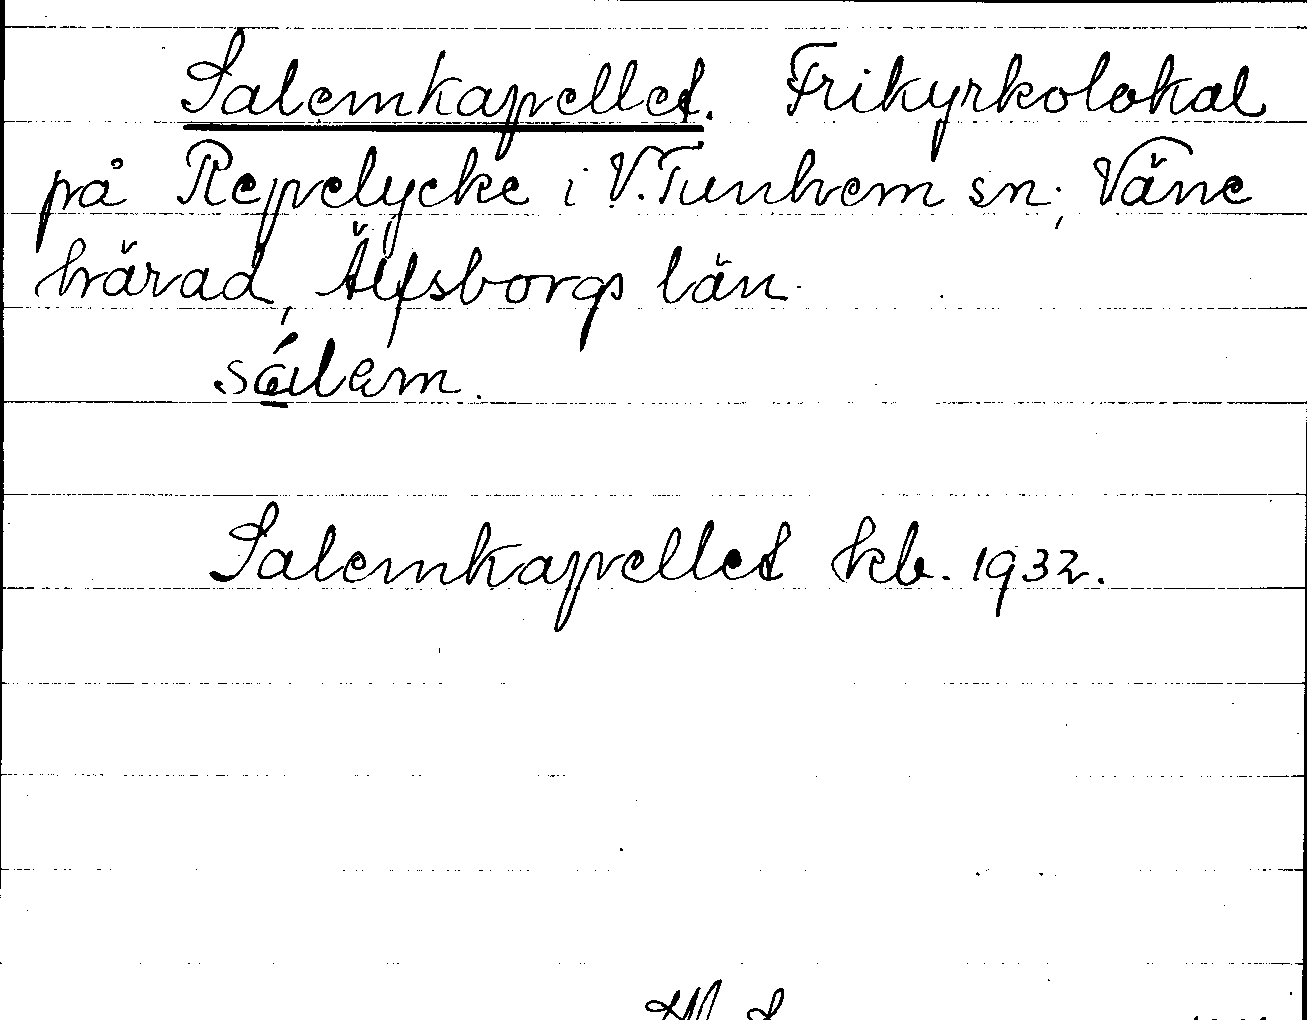 Salemkapellet. Frikyrkolokal
på Repelycke i V. Tunhem sn, Väne
härad, Älfsborgs län.
sálem.
Salemkapellet kb. 1932.